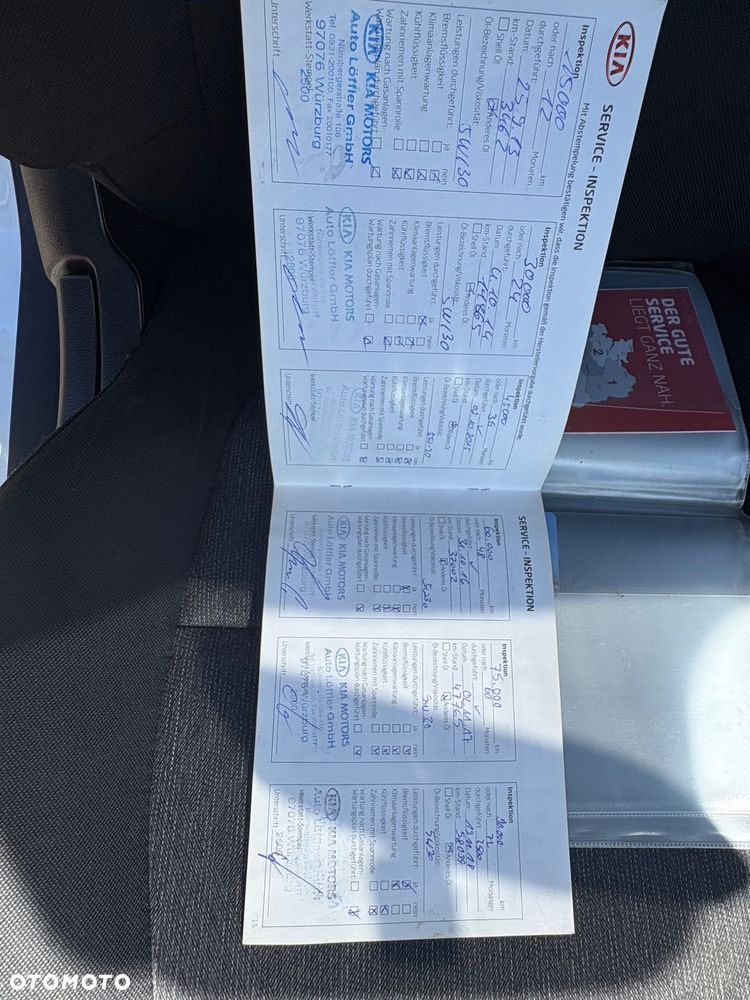 KIA SERVICE - INSPEKTION
Mit Abstempelung bestätigen wir, dass die Inspektion gemäß der Herstellervorgabe durchgeführt wurde
Inspektion
15.000 km
oder nach 12 Monaten
durchgeführt:
Datum: 25.9.13
km-Stand: 3462
Shell Öl Anderes Öl
Öl-Bezeichnung/Viskosität:
5W130
Leistungen durchgeführt: ja nein
Bremsflüssigkeit
Klimaanlagenwartung
Kühlflüssigkeit
Zahnriemen mit Spannrolle
Wartung nach Gasanlagen-
KIA KIA MOTORS
Auto Löffler GmbH
Nürnbergerstraße 106
Tel. 0931-200100, Fax 20010177
97076 Würzburg
Werkstatt-Stempel
2500
Unterschrift
Inspektion
30.000 km
oder nach 24 Monaten
durchgeführt:
Datum:
km-Stand:
Shell Öl Anderes Öl
Öl-Bezeichnung/Viskosität:
5W130
Leistungen durchgeführt: ja nein
Bremsflüssigkeit
Klimaanlagenwartung
Kühlflüssigkeit
Zahnriemen mit Spannrolle
Wartung nach Gasanlagen-
Wartungsplan durchgeführt
KIA KIA MOTORS
Auto Löffler GmbH
Werkstatt-Stempel
Würzburg
Unterschrift
Inspektion
45.000 km
oder nach 36 Monaten
durchgeführt:
Datum:
km-Stand:
Shell Öl Anderes Öl
Öl-Bezeichnung/Viskosität:
Leistungen durchgeführt: ja nein
Bremsflüssigkeit
Klimaanlagenwartung
Kühlflüssigkeit
Zahnriemen mit Spannrolle
Wartung nach Gasanlagen-
Wartungsplan durchgeführt
Werkstatt-Stempel
Unterschrift
SERVICE - INSPEKTION
Inspektion
60.000 km
oder nach 48 Monaten
durchgeführt:
Datum:
km-Stand: 37002
Shell Öl Anderes Öl
Öl-Bezeichnung/Viskosität:
5W30
Leistungen durchgeführt: ja nein
Bremsflüssigkeit
Klimaanlagenwartung
Kühlflüssigkeit
Zahnriemen mit Spannrolle
Wartung nach Gasanlagen-
Wartungsplan durchgeführt
KIA KIA MOTORS
Auto Löffler GmbH
Unterschrift
Inspektion
75.000 km
oder nach 60 Monaten
durchgeführt:
Datum:
km-Stand: 47765
Shell Öl Anderes Öl
Öl-Bezeichnung/Viskosität:
Leistungen durchgeführt: ja nein
Bremsflüssigkeit
Klimaanlagenwartung
Kühlflüssigkeit
Zahnriemen mit Spannrolle
Wartung nach Gasanlagen-
Wartungsplan durchgeführt
KIA KIA MOTORS
Auto Löffler GmbH
97076 Würzburg
Unterschrift
Inspektion
km
oder nach 72 Monaten
durchgeführt:
Datum: 13.11.18
km-Stand: 58039
Shell Öl Anderes Öl
Öl-Bezeichnung/Viskosität:
Leistungen durchgeführt: ja nein
Bremsflüssigkeit
Klimaanlagenwartung
Kühlflüssigkeit
Zahnriemen mit Spannrolle
Wartung nach Gasanlagen-
Wartungsplan durchgeführt
KIA KIA MOTORS
Auto Löffler GmbH
Werkstatt-Stempel
97076 Würzburg
Unterschrift
15
DER GUTE
SERVICE
LIEGT GANZ NAH.
2
OTOMOTO